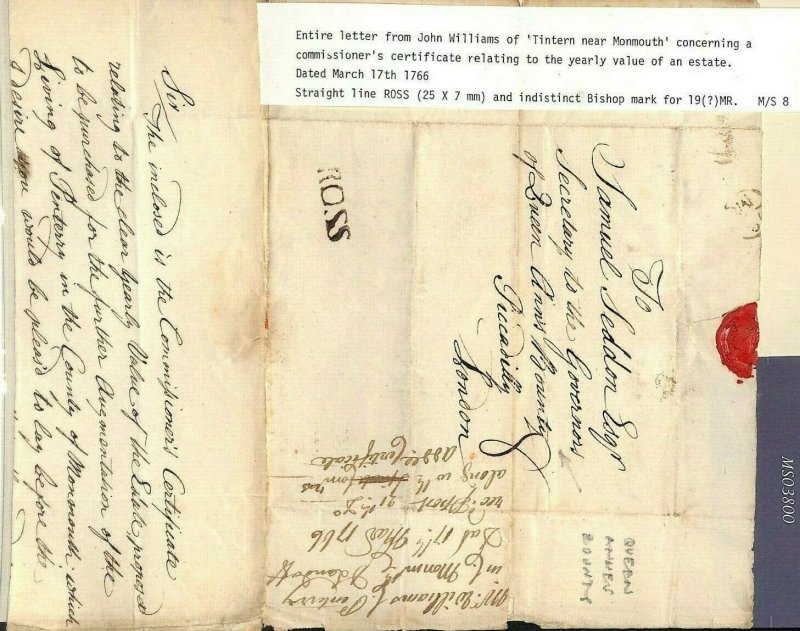 Entire letter from John Williams of 'Tintern near Monmouth' concerning a
commissioner's certificate relating to the yearly value of an estate.
Dated March 17th 1766
Straight line ROSS (25 X 7 mm) and indistinct Bishop mark for 19(?)MR. M/S 8
Sir
The inclosed is the Commissioner's Certificate
relating to the clear yearly Value of the Estate proposed
to be purchased for the further Augmentation of the
Living of Penterry in the County of Monmouth: which
I desire you would be pleas'd to lay before the
ROSS
To
Samuel Seddon Esqr
Secretary to the Governors
of Queen Ann's Bounty
Piccadilly
London
Mr. Williams
Penterry
in Monm
Landaff
Dat 17th Mar 1766
along wth
Certificate
QUEEN
ANNES
BOUNTY
MS03800